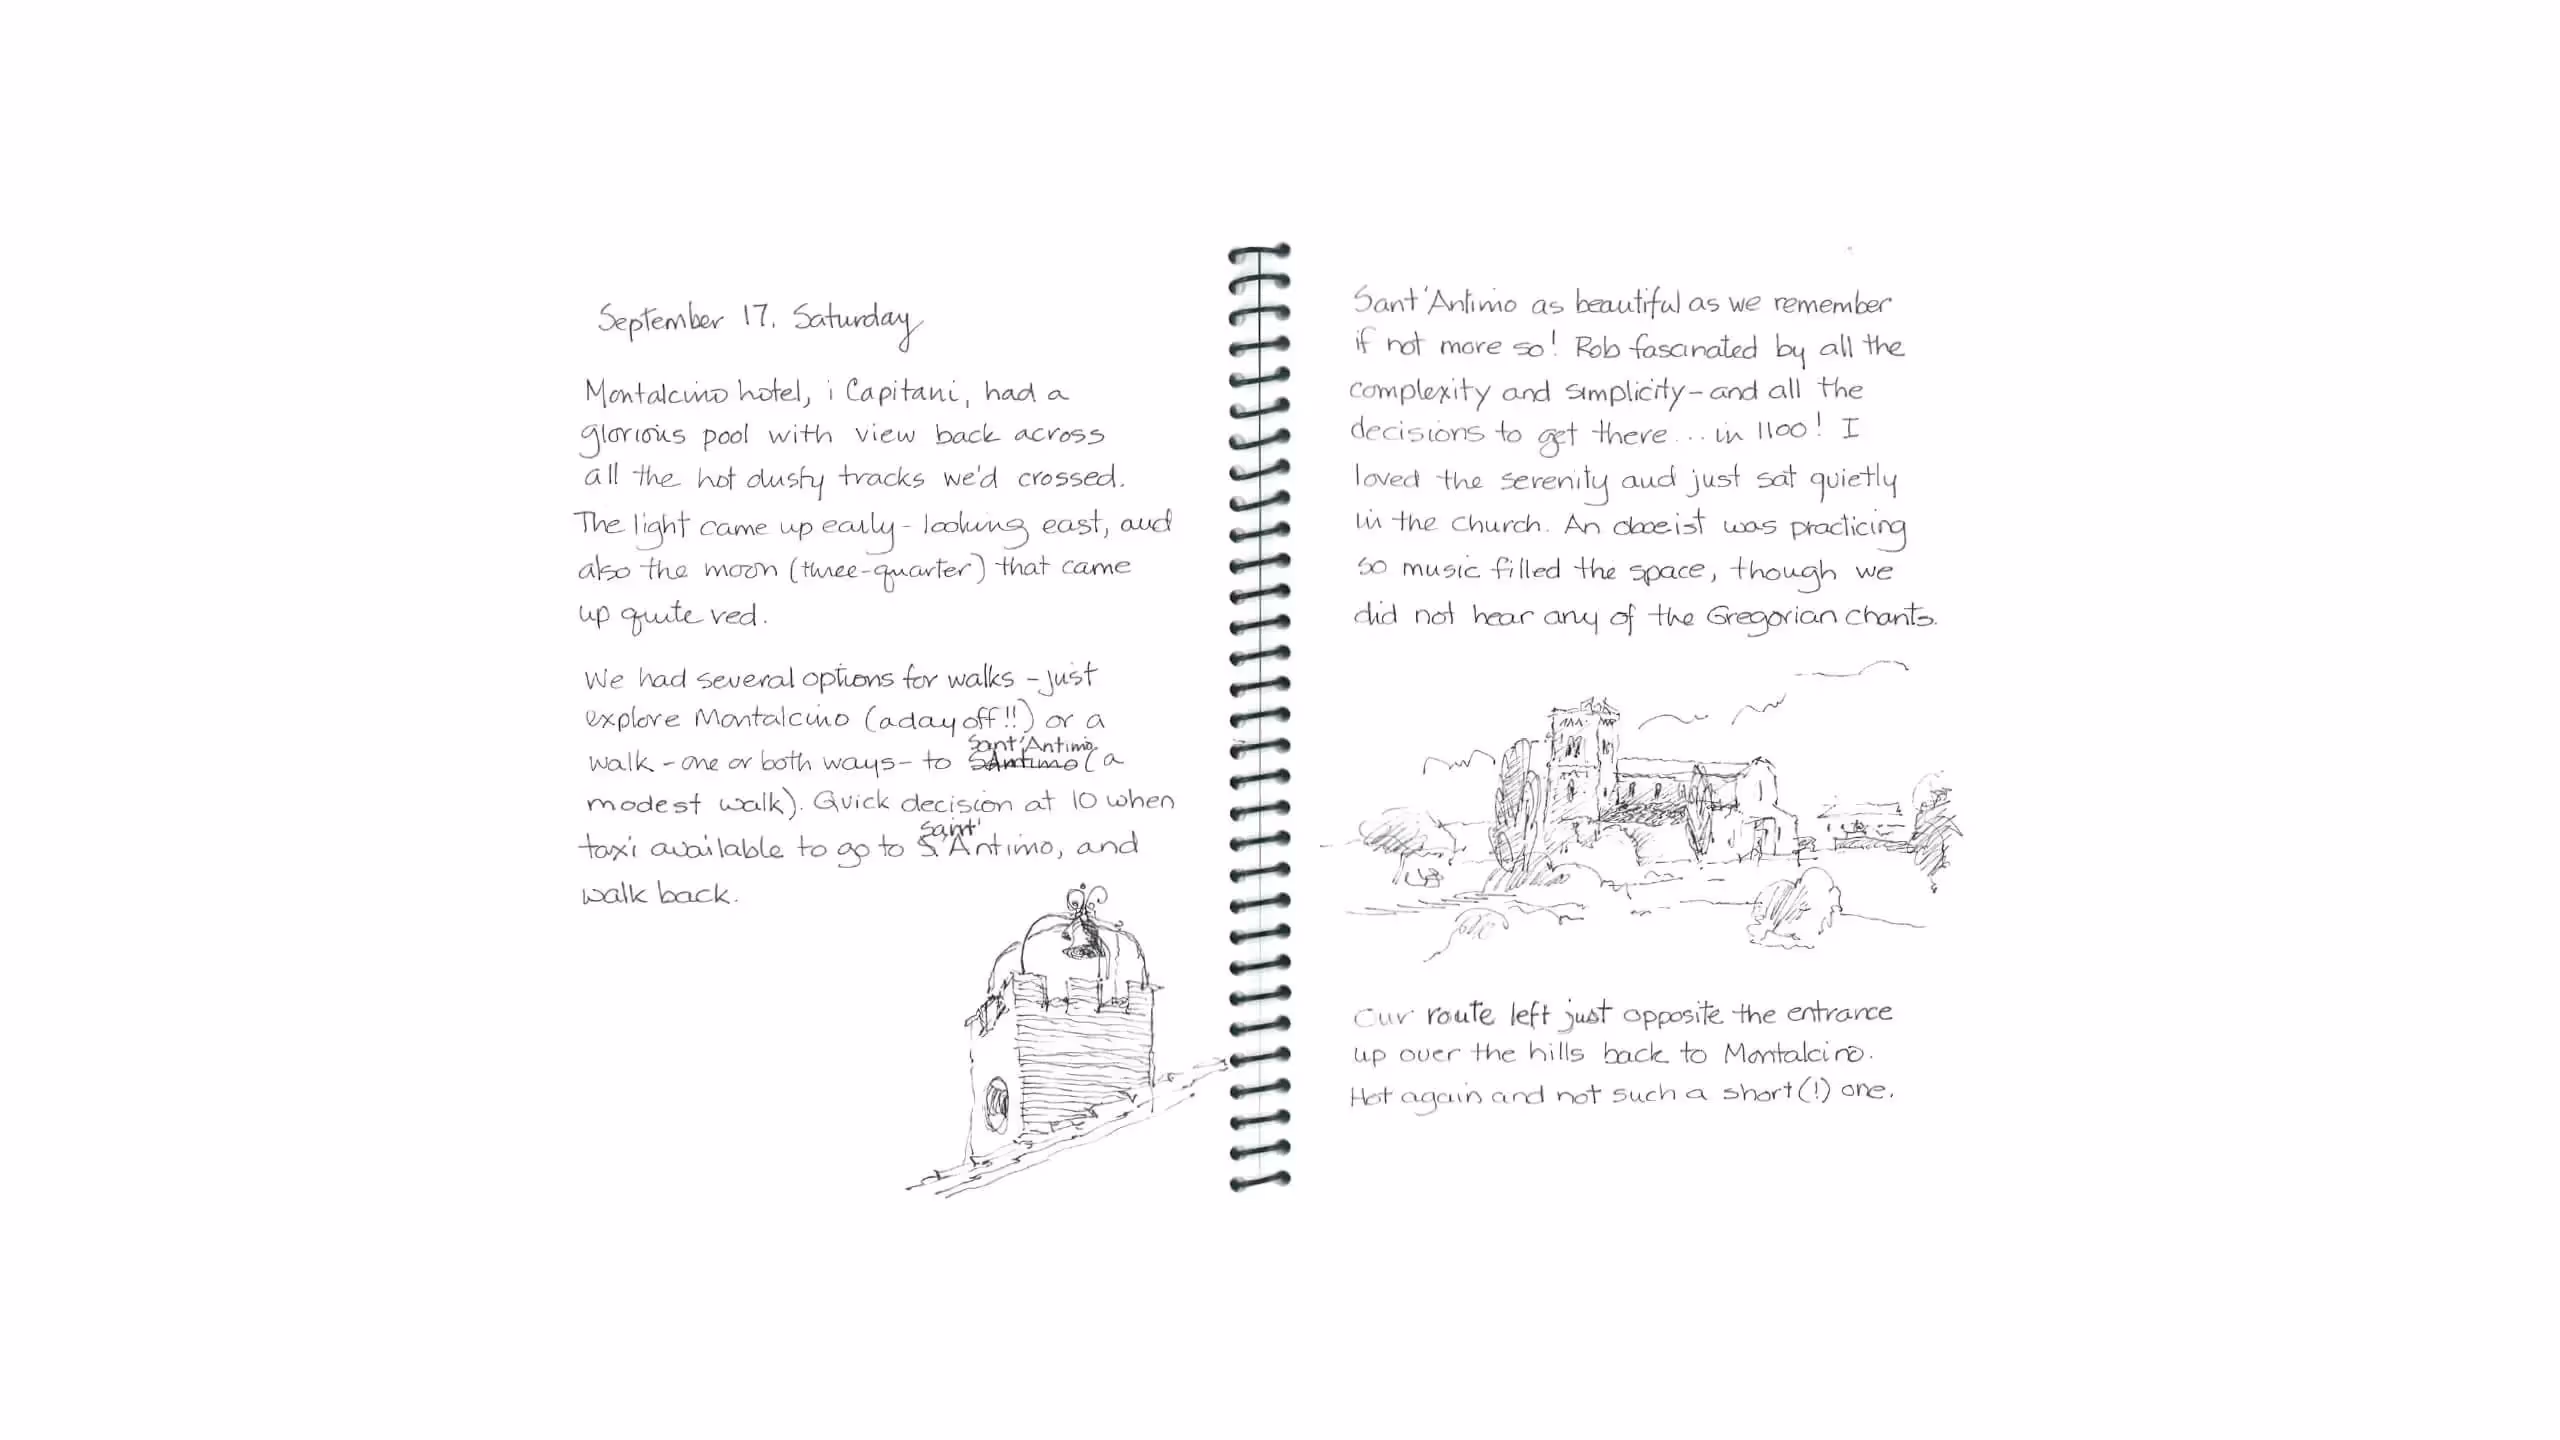 September 17. Saturday
Montalcino hotel, i Capitani, had a
glorious pool with view back across
all the hot dusty tracks we'd crossed.
The light came up early - looking east, and
also the moon (three-quarter) that came
up quite red.
We had several options for walks - just
explore Montalcino (a day off!!) or a
Sant'Antimo
walk - one or both ways - to SAntimo (a
modest walk). Quick decision at 10 when
Sant'
taxi available to go to S.'Antimo, and
walk back.
Sant'Antimo as beautiful as we remember
if not more so! Rob fascinated by all the
complexity and simplicity - and all the
decisions to get there... in 1100! I
loved the serenity and just sat quietly
in the church. An oboeist was practicing
so music filled the space, though we
did not hear any of the Gregorian chants.
Our route left just opposite the entrance
up over the hills back to Montalcino.
Hot again and not such a short (!) one.